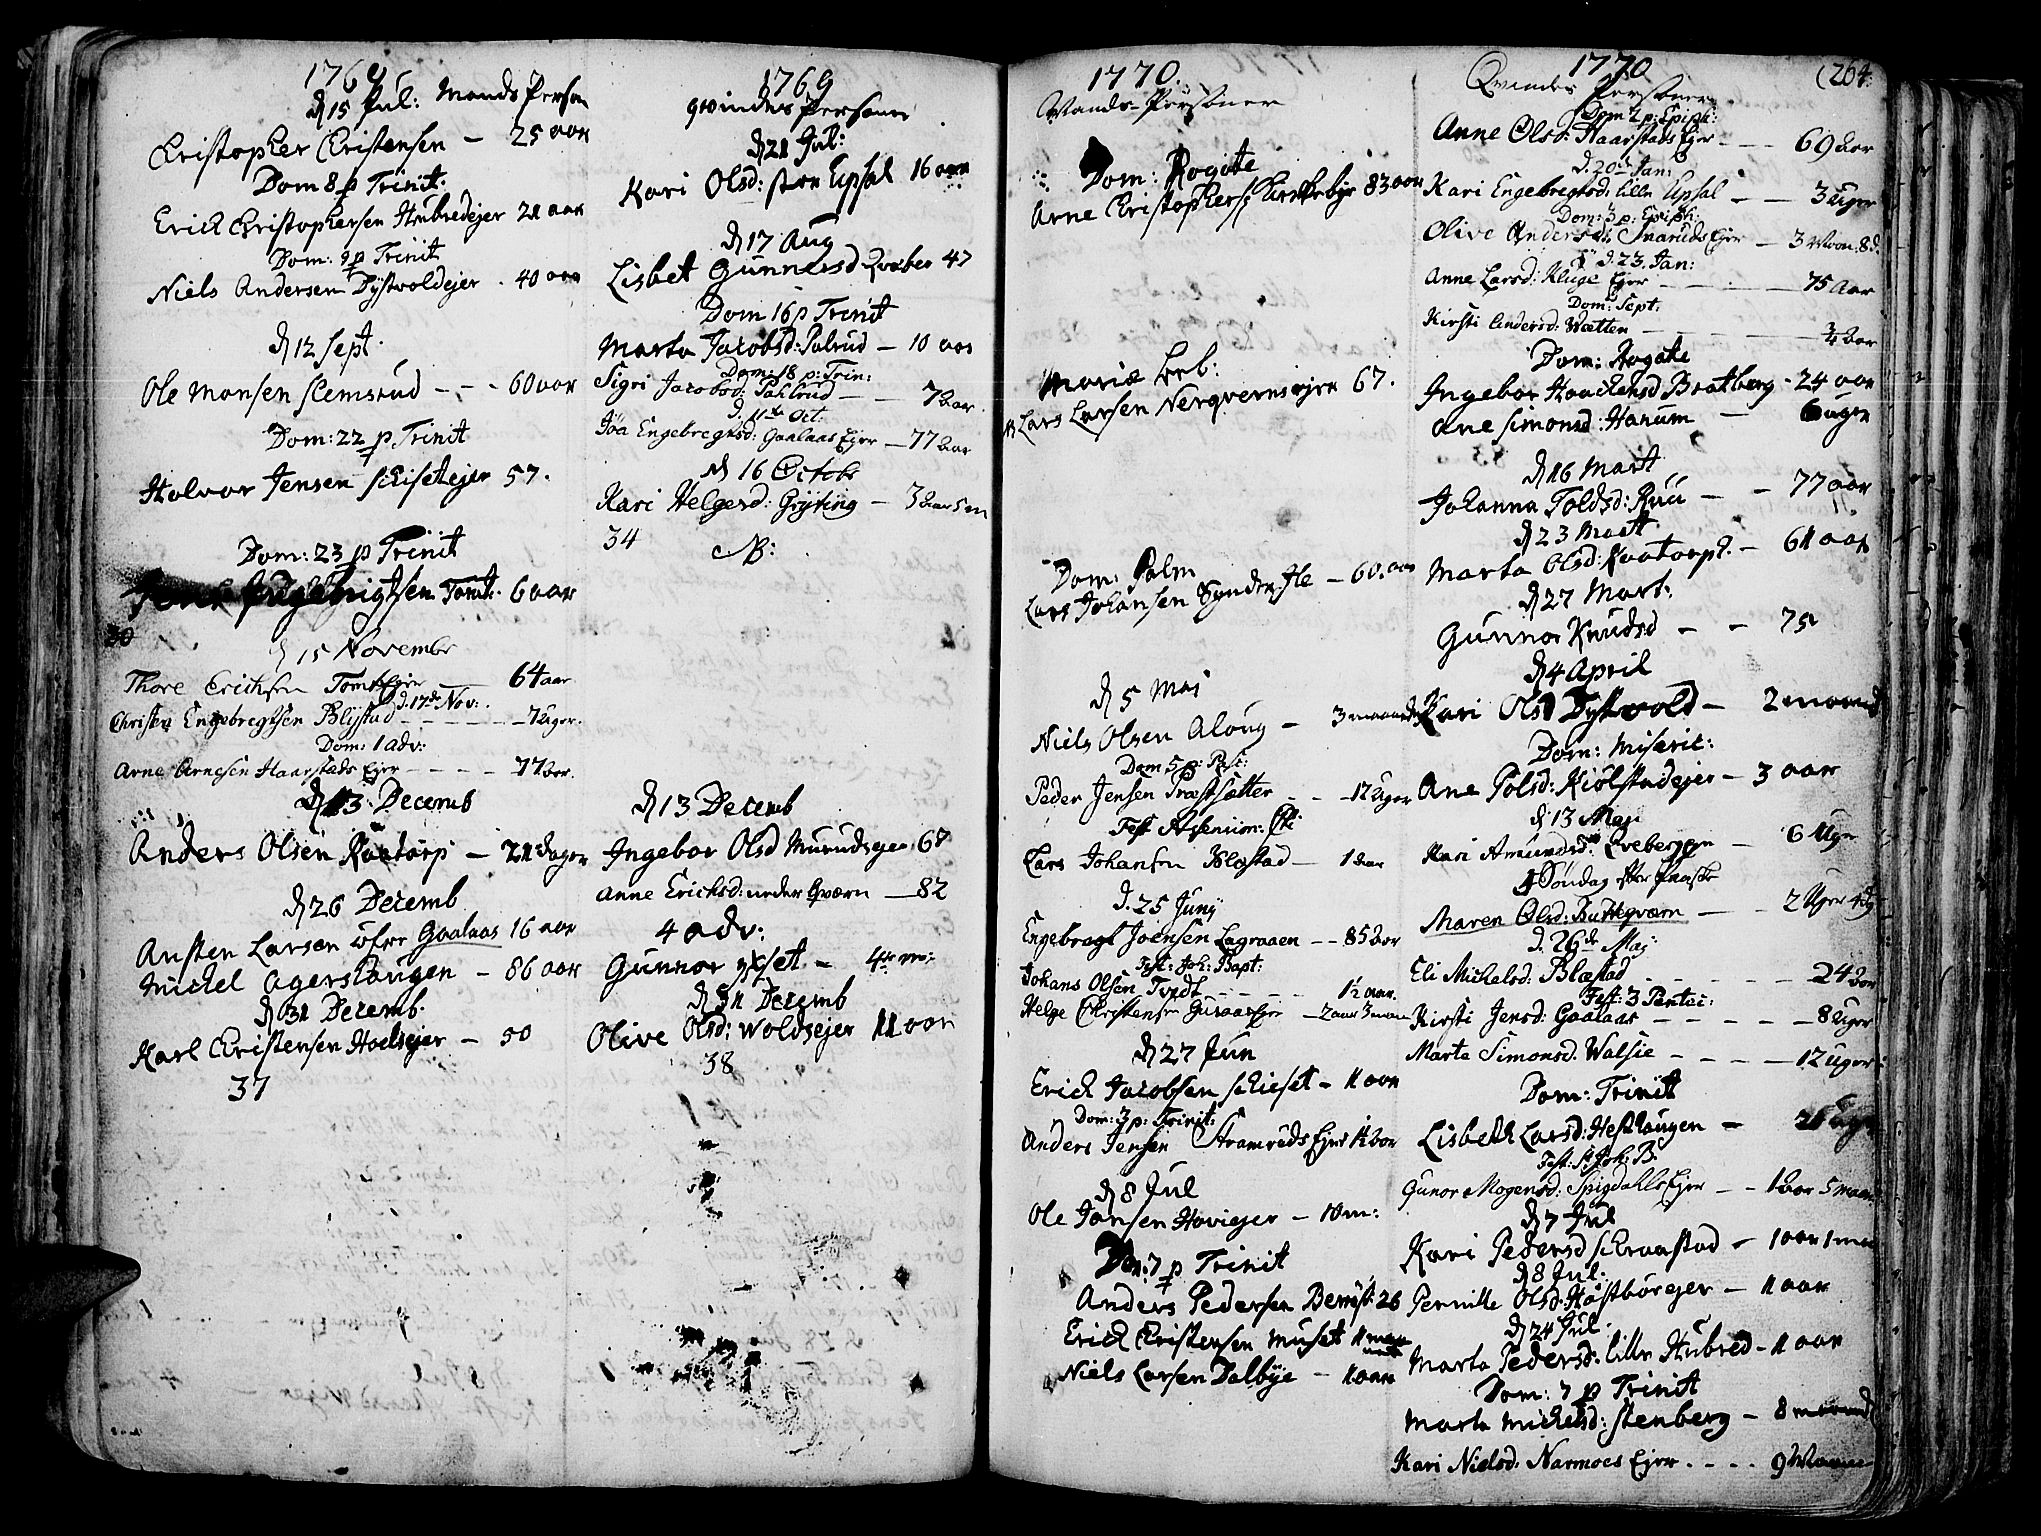 1769
d 15 Jul: Mands Person
Christopher Christensen — 25 aar
Dom 8 p Trinit:
Erich Christophersen Hubredejer 21 aar
Dom: 9 p Trinit
Niels Andersen Dystvoldejer . 40 aar
d 12 Sept.
Ole Monsen Slemsrud - - - 60 aar
Dom: 22 p Trinit
Halvor Jensen Schisetejer 57.
Dom: 23 p Trinit
Engebrigtsen Tomt. 6 aar
30
d 15 Novembr
Thore Erichsen Tomt Ejer — 64 aar
d. 17de Nov:
Christen Engebregtsen Blijstad - - - - - 7 Uger.
Dom: 1 adv:
Arne Arnesen Haarstads Ejer - - - - 77 aar.
d 13 Decemb
Anders Olsen Kaatorp — 21 dager
d 26 Decemb
Ansten Larsen øfre Gaalaas 16 aar
Michel Agershaugen - 86 aar
d 31 Decemb.
Karl Christensen Hoelsejer — 50
37
1769
qwindes Persone
d 21 Jul:
Kari Olsd: store Upsal 16 aar
d 17 Aug
Lisbet Gunnersd Qvæber 47
Dom 16 p Trinit
Marta Jacobsd: Palrud — 10 aar
Dom: 18 p: Trin:
Sigri Jacobsd: Pahlrud — — 7 aar.
d. 11te Oct:
Jøa Engebregtsd: Gaalaas Ejer — 77 aar
d 16 Octobr
Kari Helgesd: Grÿting — 3 aar 5 m
34
NB:
d 13 Decemb
Ingebor Olsd Murudsejer 67
Anne Erichsd: neder Qværn — 82
4 adv:
Gunnor — 4 m:
d 31 Decemb
Olive Olsd: Woldsejer 11 aar
38
1770.
Mands-Persohner
Dom: Rogate
Arne Christophers: Kirkebye 83 aar
Mariæ Beb:
Lars Larsen Nerqvernsejer 67.
Dom: Palm
Lars Johansen Synder Ile — 60. aar
d 5 Maj
Niels Olsen Aloug — 3 maaneder
Dom 5 p: Pasc:
Peder Jensen Præstsætter - - - 17 Uger
Fest Ascension: Chr
Lars Johansen Blæstad — 1 aar
d. 25 Junÿ
Engebregt Joensen Lagraaen - - 85 aar
Fest: Joh: Bapt:
Johans Olsen Tvedt - - - - 1½ aar.
Helge Christensen Guraas Ejer — 2 aar 3 maan
d 27 Jun
Erich Jacobsen Schieset — 11 aar
Dom: 3 p: Trinit:
Anders Jensen Stramruds Ejer 1½ aar
d 8 Jul
Ole Jonsen Hoviejer — 10 m:
Dom: 7 p Trinit
Anders Pedersen Berrøst: 26
Erich Christensen Muset 11 maaneder
Niels Larsen Dalbye — 1 aar
1770
(264.
Qvindes Persohner
Dom 2 p: Epiph:
Anne Olsd: Haarstads Ejer - - - 69 aar
d. 20de Jan:
Kari Engebregtsd: lille Upsal — — 3 Uger
Dom: 3 p: Epiph:
Olive Andersd: Snaruds Ejer — 3 Maan. 8 d.
d. 23. Jan:
Anne Larsd: Kluge Ejer — — — 75 aar
Dom: Sept:
Kirsti Andersd: Wætten — — — — ¾ aar
Dom: Rogate
Ingebor Haachensd Bratberg - 24 aar
Ane Simonsd: Hanum — 6 uger
d 16 Mart
Johanna Toldsd: Ruu — — 77 aar
d 23 Mart
Marta Olsd: Kaatorp. — 61 aar
d 27 Mart:
Gunnor Knudsd — — 75
d 4 April
Kari Olsd Dystvold — 2 maand
Dom: Miseric:
Ane Polsd: Kiølstadejer — 3 aar
d 13 Maji
Kari Amundsd: Qvebergen — 6 Uger
4 Søndag efter Paaske
Maren Olsd: Kuttegværn — - 2 Uger 4 dg
d. 26de Maj:
Eli Michelsd: Blæstad - - - - - 24 aar
Fest: 3 Pentec:
Kirsti Jensd: Gaalaas — — — — 8 Uger
Marta Simonsd. Walsie - - - - 12 Uger:
Dom: Trinit
Lisbeth Larsd: Hesthaugen — 26 Uger
Fest: St. Joh: B.
Gunor Mogensd: Spigdahls Ejer — - 1 aar 5 maan
d 7 Jul
Kari Pedersd Schraastad — 1 aar 1 maa
d 8 Jul:
Pernille Olsd: Høstborejer — 11 aar
d 24 Jul.
Marta Pedersd: lille Hubred — 11 aar
Dom: 7 p Trinit
Marta Michelsd: Stenberg — 8 maaned
Kari Nielsd: Narmoes Ejer . - - - 9 Maane